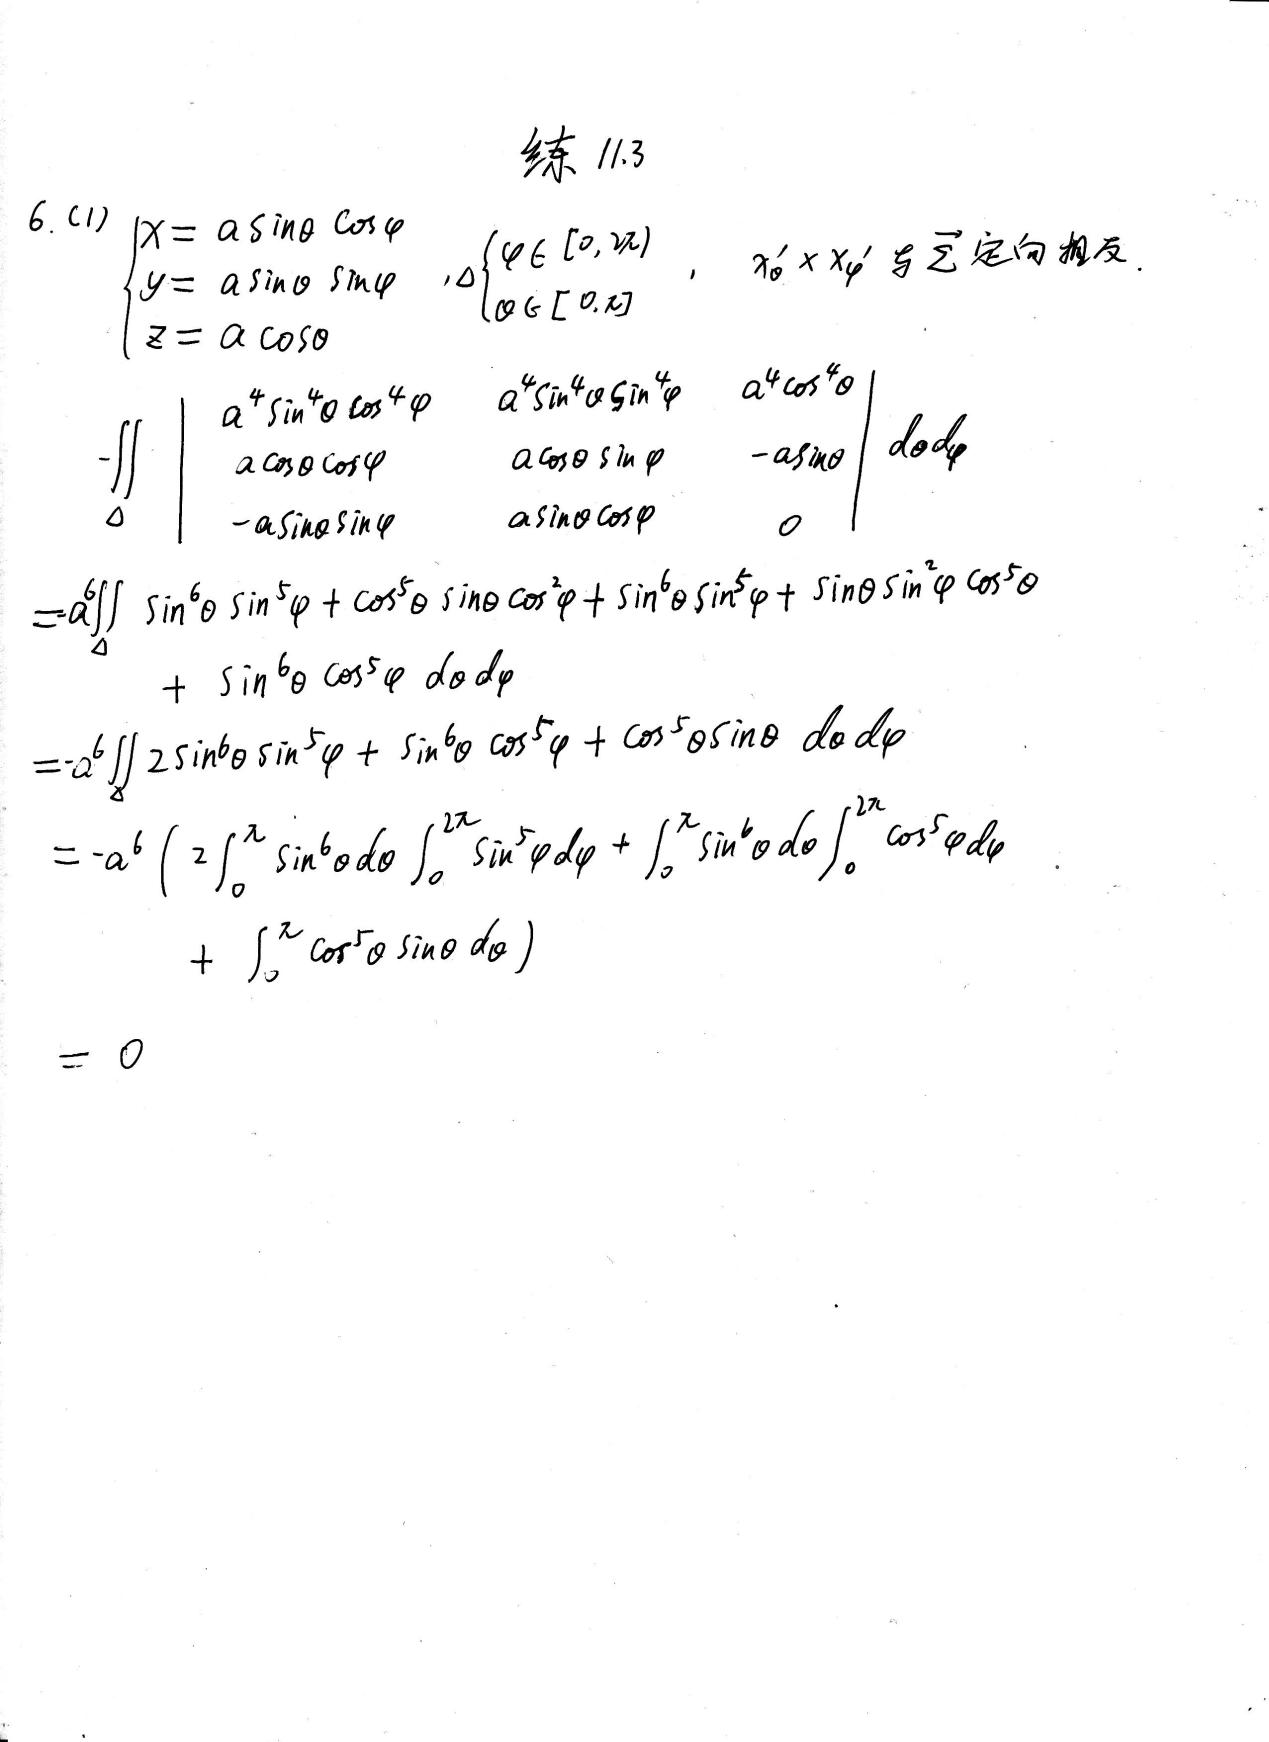 练 11.3
6. (1) { x = a sinθ cosφ
y = a sinθ sinφ , Δ { φ ∈ [0, 2π) θ ∈ [0, π] , x'θ × x'φ 与 Σ⃗ 定向相反.
z = a cosθ
-∬Δ | a⁴sin⁴θ cos⁴φ a⁴sin⁴θ sin⁴φ a⁴cos⁴θ |
a cosθ cosφ a cosθ sinφ -a sinθ | dθdφ
-a sinθ sinφ a sinθ cosφ 0
= -a⁶∬Δ sin⁶θ sin⁵φ + cos⁵θ sinθ cos²φ + sin⁶θ sin⁵φ + sinθ sin²φ cos⁵θ
+ sin⁶θ cos⁵φ dθdφ
= -a⁶∬Δ 2 sin⁶θ sin⁵φ + sin⁶θ cos⁵φ + cos⁵θ sinθ dθdφ
= -a⁶ ( 2∫₀^π sin⁶θdθ ∫₀^2π sin⁵φdφ + ∫₀^π sin⁶θdθ ∫₀^2π cos⁵φdφ
+ ∫₀^π cos⁵θ sinθ dθ )
= 0